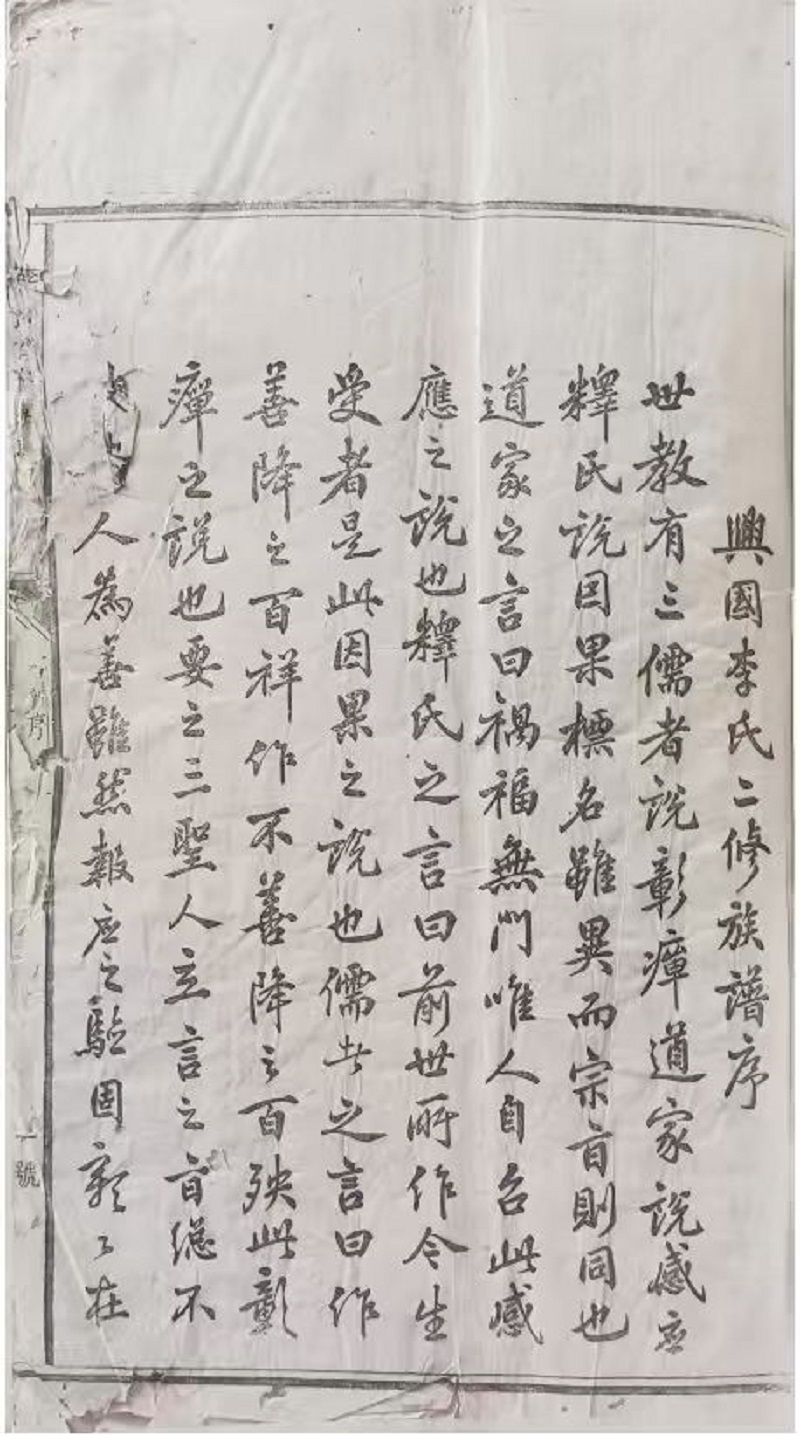 興國李氏二修族譜序
世教有三儒者說彰瘴道家說感应
釋氏說因果標名雖異而宗旨則同也
道家之言曰禍福無門唯人自召此感
應之說也釋氏之言曰前世所作今生
受者是此因果之說也儒者之言曰作
善降之百祥作不善降之百殃此彰
癉之說也要之三聖人立言之旨總不
人為善雖然報应之驗固彰々在
一號